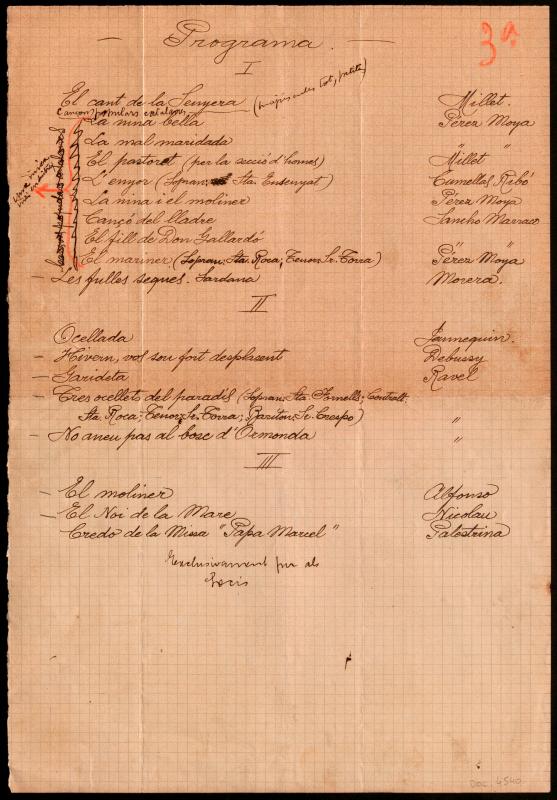 Programa. 3ª
I
El cant de la Senyera Millet.
Cançons populars catalanes
La nina bella Pérez Moya
La mal maridada " "
El pastoret (per la secció d'homes) Millet
L'enyor (Sopran: Sta Ensenyat) Cumellas Ribó
La nina i el moliner Pérez Moya
Cançó del lladre Sancho Marraco
El fill de Don Gallardó " "
El mariner (Sopran: Sta. Roca; Tenor: Sr. Torra) Pérez Moya
– Les fulles seques. Sardana Morera.
II
Ocellada Jannequin.
– Hivern, vos sou fort desplasent Debussy
– Garideta Ravel
– Tres ocellets del paradís (Sopran: Sta. Fornells; Contralt:
Sta. Roca; Tenor: Sr. Torra; Baríton: Sr. Crespo) "
– No aneu pas al bosc d'Ormonda "
III
– El moliner Alfonso
– El Noi de la Mare Nicolau
Credo de la Missa "Papa Marcel" Palestrina
Exclusivament per als
Socis
DOC. 4540